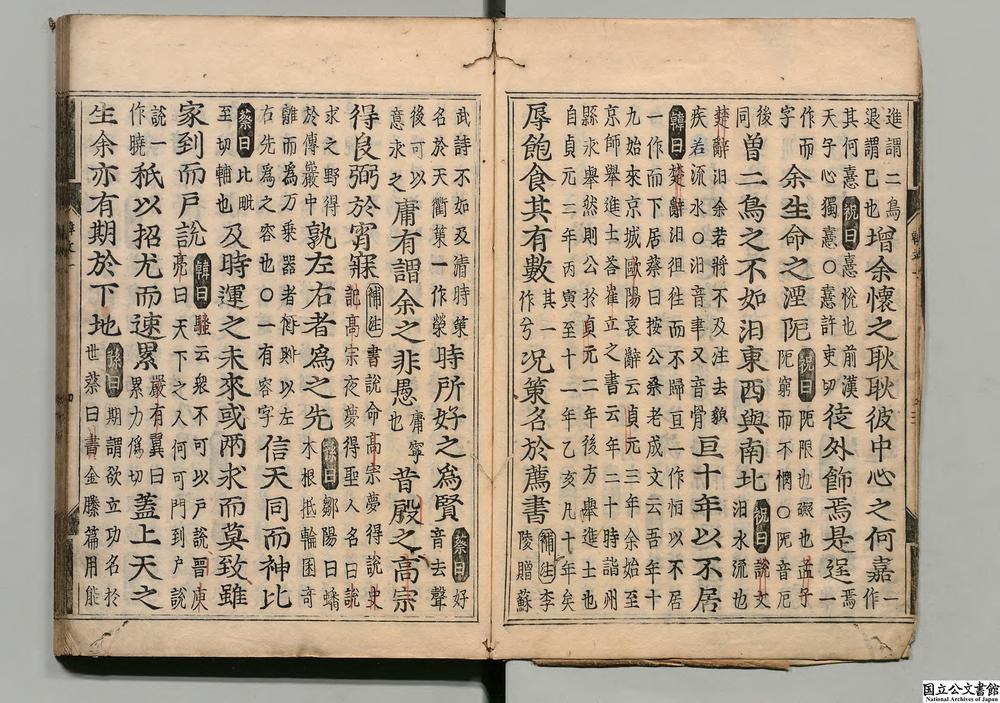 進謂二鳥退謂已也增余懷之耿耿彼中心之何嘉一作
其何憙祝曰憙悅也前漢天子心獨憙○憙許吏切徒外飾焉是逞焉一
作而字余生命之湮阨祝曰阨限也礙也孟子阨窮而不憫○阨音厄
後同曾二鳥之不如汨東西與南北祝曰說文汨水流也
楚辭汨余若將不及注去貌疾若流水○汨音聿又音骨亘十年以不居
韓曰楚辭汨徂往而不歸亘一作恒以不居一作而下居蔡曰按公桑老成文云吾年十
九始來京城歐陽哀辭云貞元三年余始至京師舉進士答崔立之書云年二十時詣州
縣永舉然則公於貞元二年後方舉進士也自貞元二年丙寅至十一年乙亥凡十年矣
辱飽食其有數其一作兮況策名於薦書補注李陵贈蘇
武詩不如及清時策名於天衢策一作榮時所好之為賢蔡曰好音去聲
後可以意求之庸有謂余之非愚庸寧也昔殷之高宗
得良弼於宵寐補注書說命高宗夢得說史記高宗夜夢得聖人名曰說
求之野得於傅巖中孰左右者為之先孫曰鄒陽曰蟠木根抵輪囷奇
離而為万乘器者何則以左右先為之容也○一有容字信天同而神比
蔡曰比毗至切輔也及時運之未來或兩求而莫致雖
家到而戸說韓曰騷云衆不可以戸說晉庾亮曰天下之人何可門到戸說
說一作曉祇以招尤而速累嚴有翼曰累力僞切蓋上天之
生余亦有期於下地孫曰期謂欲立功名於世蔡曰書金縢篇用能
国立公文書館
National Archives of Japan